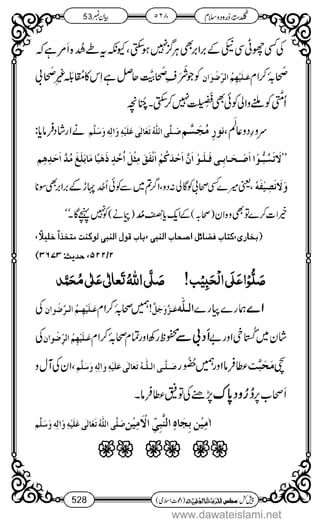 گلدستۂ دُرود و سلام ٥٢٨ بیان نمبر:53
کسی کی چھوٹی سی نیکی کے برابر بھی ہرگز نہیں ہو سکتی، کیونکہ یہ طے شدہ اَمر ہے کہ
صحابہ کرام عَلَیْہِمُ الرِّضْوَان کو جو شَرَفِ صَحَابِیَّت حاصل ہے اس کا مُقابلہ غیر صحابی
اُمَّتی کو ملنے والی کوئی بھی فضیلت نہیں کر سکتی۔ چنانچہ
سرورِ دو عالَم، نُورِ مُجَسَّم صَلَّی اللہُ تَعَالٰی عَلَیْہِ وَاٰلِہٖ وَسَلَّم نے ارشاد فرمایا:
”لَاتَسُبُّوْا اَصْحَابِیْ فَلَوْ اَنَّ اَحَدَکُمْ اَنْفَقَ مِثْلَ اُحُدٍ ذَھَبًا مَابَلَغَ مُدَّ اَحَدِھِمْ
وَلَا نَصِیْفَہٗ، یعنی میرے کسی صحابی کو گالی نہ دو، اگر تم میں سے کوئی اُحد پہاڑ کے برابر بھی سونا
خیرات کرے تو وہ ان (صحابہ) کے ایک مُد یا نصف مُد (ناپنے) کو نہیں پہنچے گا۔“
(بخاری،کتاب فضائل اصحاب النبی ،باب قول النبی لوکنت متخذاً خلیلًا،
٥٢٢/٢، حدیث:٣٦٧٣)
صَلُّوْا عَلَی الْحَبِیْب! صَلَّی اللہُ تَعَالٰی عَلٰی مُحَمَّد
اے ہمارے پیارے اللہ عَزَّوَجَلَّ! ہمیں صحابہ کرام عَلَیْہِمُ الرِّضْوَان کی
شان میں گستاخی اور بے اَدبی سے محفوظ رکھ اور تمام صحابہ کرام عَلَیْہِمُ الرِّضْوَان کی
سچی مَحَبَّت عطا فرما اور ہمیں حُضُور صَلَّی اللہُ تَعَالٰی عَلَیْہِ وَاٰلِہٖ وَسَلَّم، ان کی آل و
اَصحاب پر دُرُودِ پاک پڑھنے کی توفیق عطا فرما۔
اٰمِیْن بِجَاہِ النَّبِیِّ الْاَمِیْن صَلَّی اللہُ تَعَالٰی عَلَیْہِ وَاٰلِہٖ وَسَلَّم
528 (دعوتِ اسلامی)
www.dawateislami.net